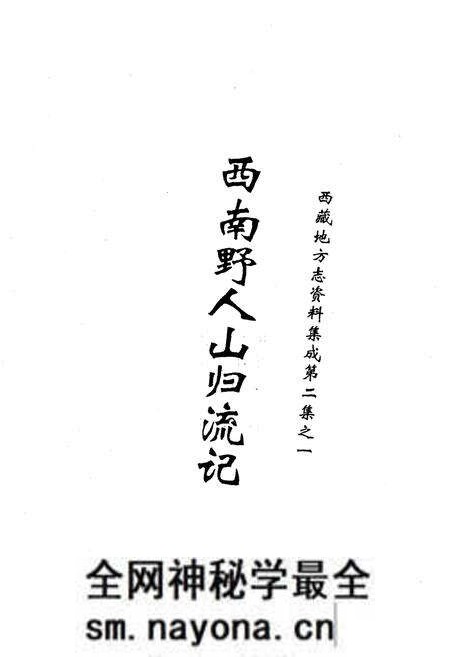 西藏地方志资料集成第二集之一
西南野人山归流记
全网神秘学最全
sm.nayona.cn